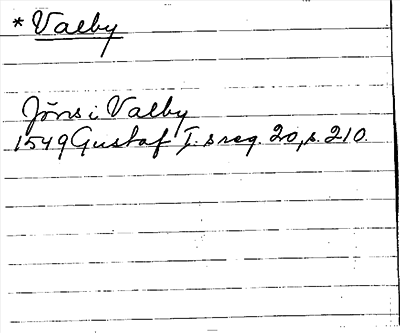 * Valby
Jöns i Valby
1549 Gustaf I.s reg. 20, s. 210.